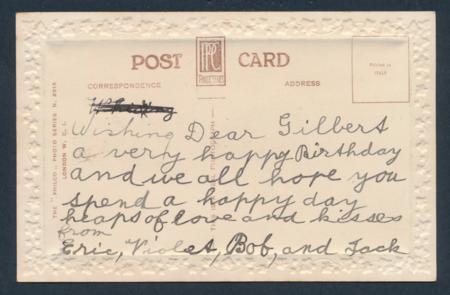 POST CARD
Printed in
ITALY
CORRESPONDENCE
ADDRESS
THE "PHILCO" PHOTO SERIES N. 2315
LONDON W. C. 1.
Wishing Dear Gilbert
a very happy Birthday
and we all hope you
spend a happy day
heaps of love and kisses
from
Eric, Violet, Bob, and Jack